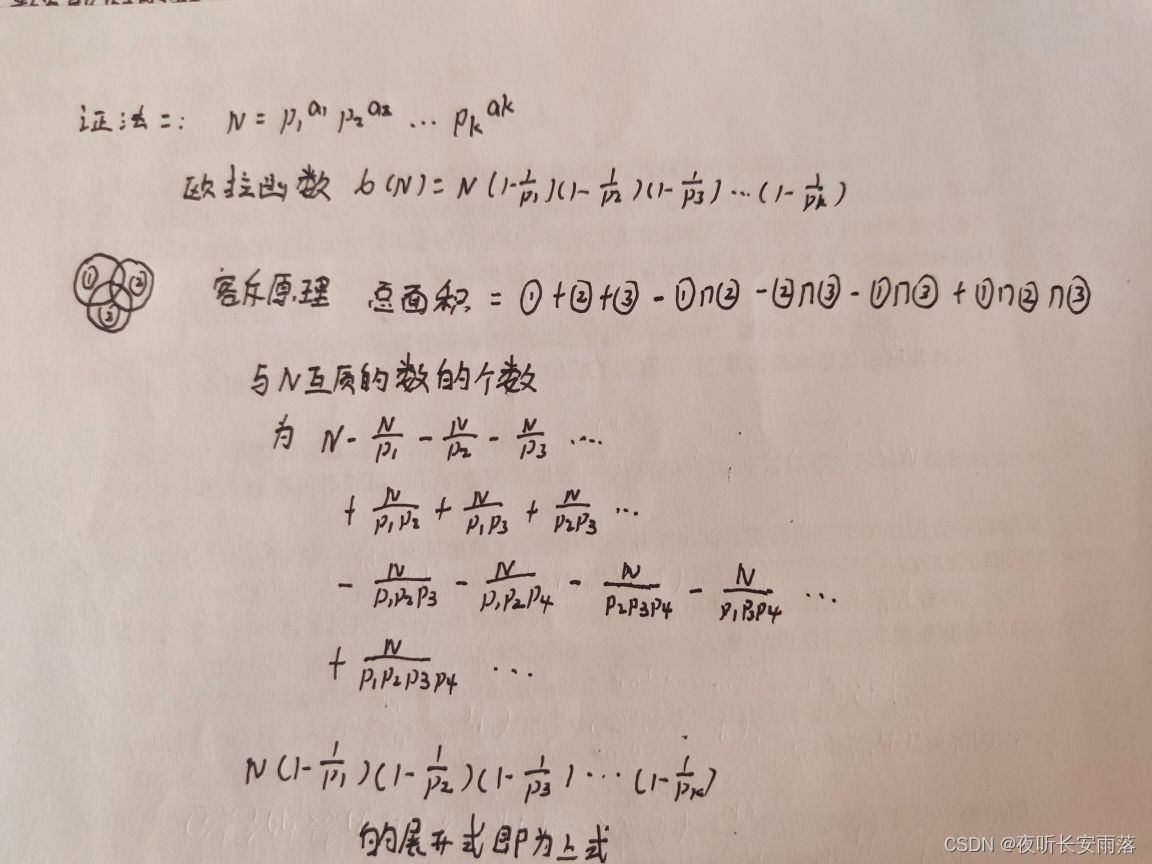 证法二: N = p₁^a₁ p₂^a₂ ... p_k^ak
欧拉函数 b(N) = N(1-1/p₁)(1-1/p₂)(1-1/p₃)...(1-1/pk)
① ② ③ 容斥原理 总面积 = ①+②+③-①∩②-②∩③-①∩③+①∩②∩③
与N互质的数的个数
为 N - N/p₁ - N/p₂ - N/p₃ ...
+ N/p₁p₂ + N/p₁p₃ + N/p₂p₃ ...
- N/p₁p₂p₃ - N/p₁p₂p₄ - N/p₂p₃p₄ - N/p₁p₃p₄ ...
+ N/p₁p₂p₃p₄ ...
N(1-1/p₁)(1-1/p₂)(1-1/p₃)...(1-1/pk)
的展开式即为上式
CSDN @夜听长安雨落